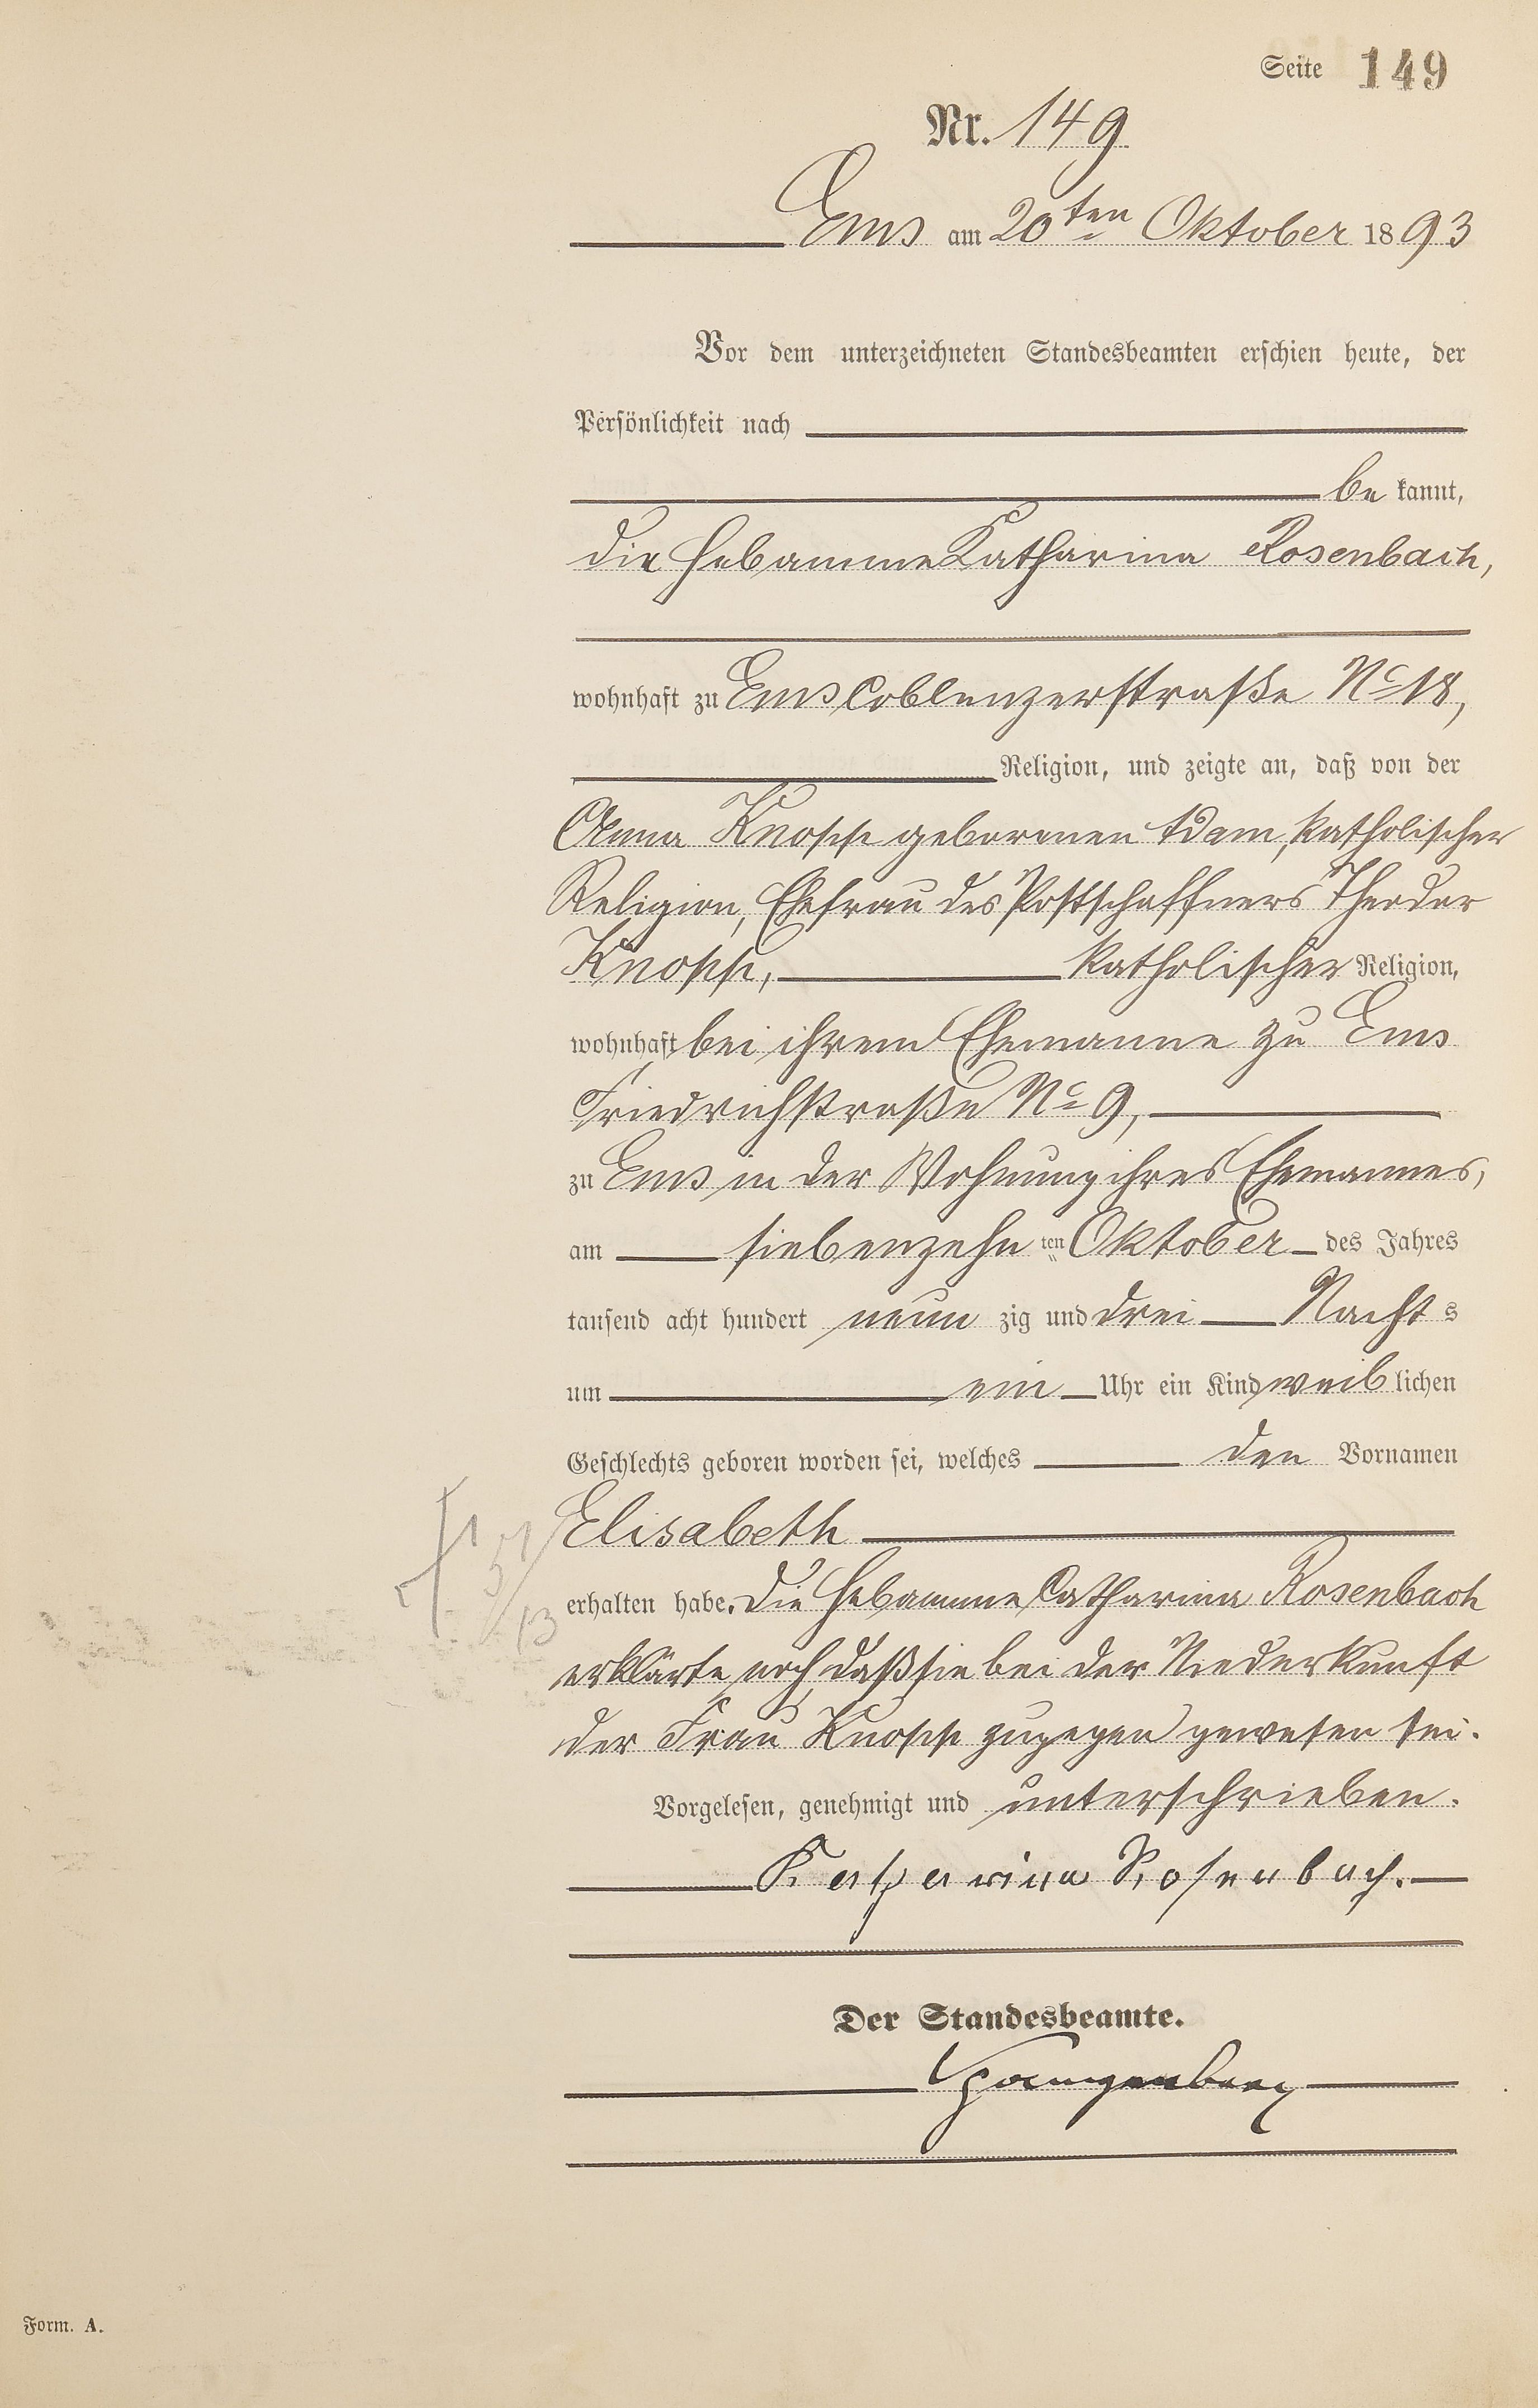 Seite 149
Nr. 149
Ems am 20ten Oktober 1893
Vor dem unterzeichneten Standesbeamten erschien heute, der
Persönlichkeit nach
bekannt,
die Hebamme Katharina Rosenbach,
wohnhaft zu Ems Coblenzerstraße No 18,
Religion, und zeigte an, daß von der
Anna Knopp geborenen Adam, katholischer
Religion, Ehefrau des Postschaffners Theodor
Knopp, katholischer Religion,
wohnhaft bei ihrem Ehemanne zu Ems
Friedrichstraße No 9,
zu Ems in der Wohnung ihres Ehemannes,
am siebenzehnten Oktober des Jahres
tausend acht hundert neunzig und drei Nachts
um ein Uhr ein Kind weiblichen
Geschlechts geboren worden sei, welches den Vornamen
Elisabeth
erhalten habe. Die Hebamme Catharina Rosenbach
erklärte noch, daß sie bei der Niederkunft
der Frau Knopp zugegen gewesen sei.
Vorgelesen, genehmigt und unterschrieben.
Katharina Rosenbach.
Der Standesbeamte.
Spangenberg
Form. A.